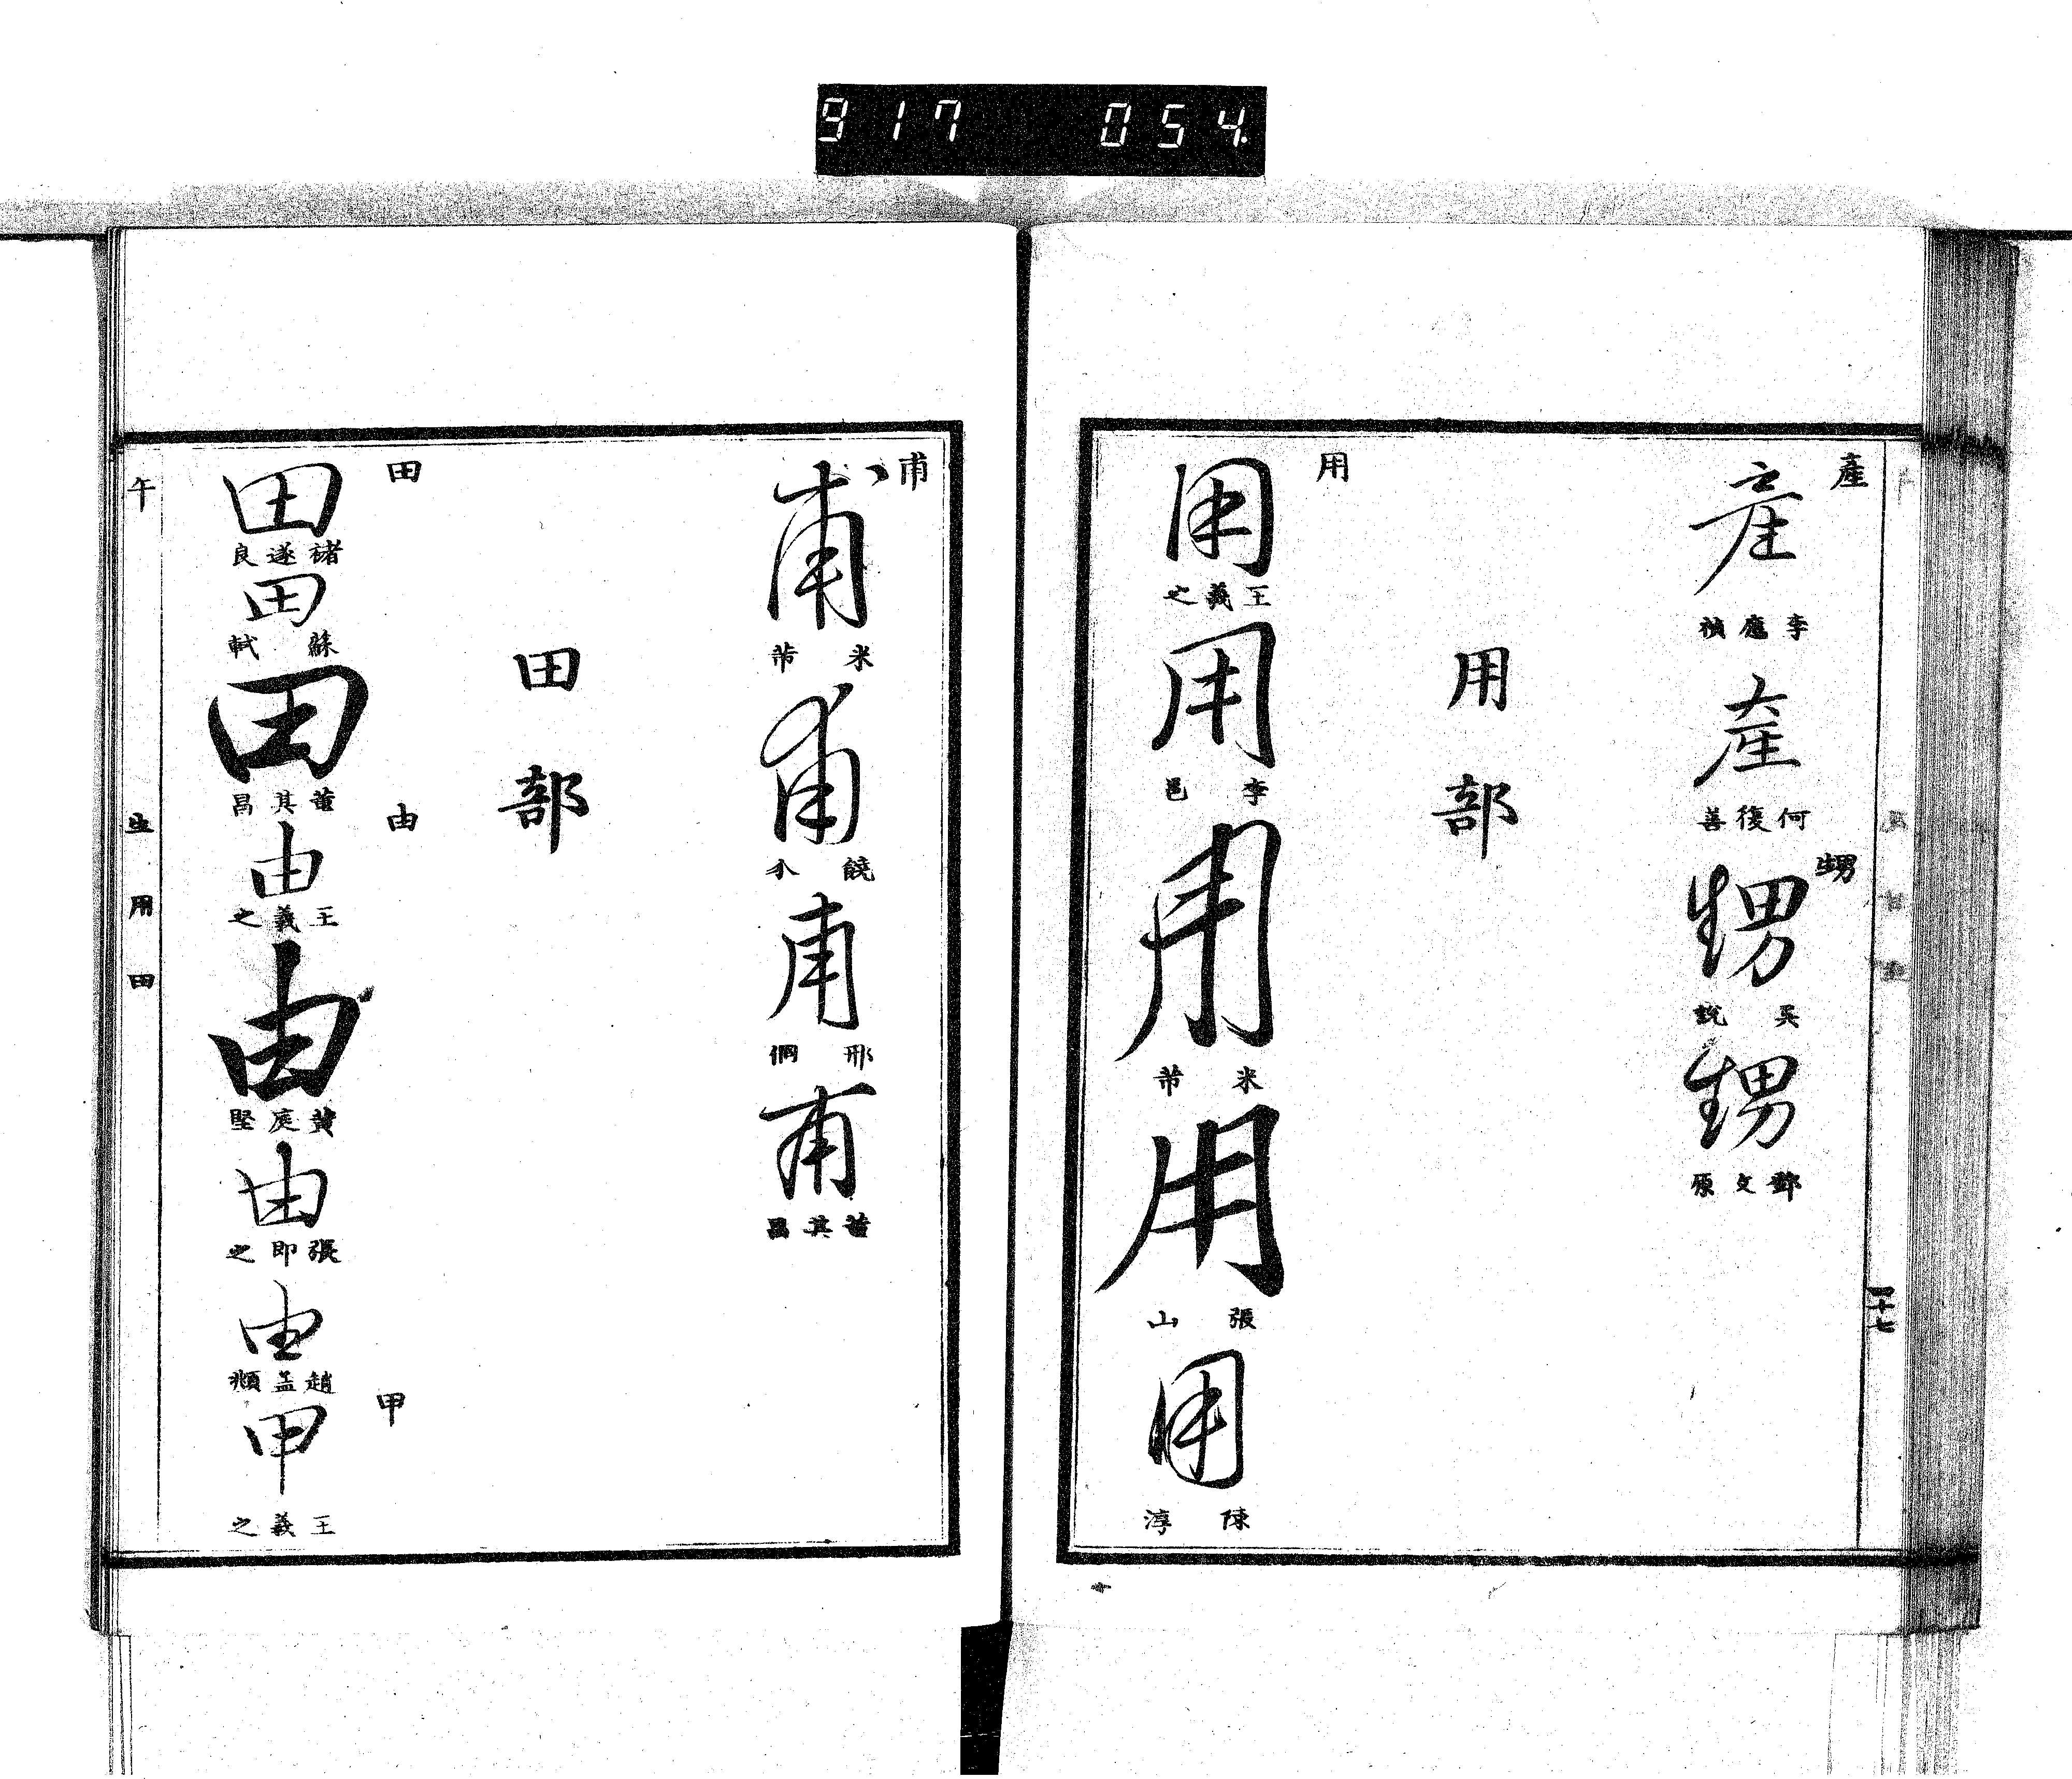 917 054
產
產
李應禎
產
何後善
甥
甥
吳說
甥
鄧文原
用部
用
用
王羲之
用
李邕
用
米芾
用
張山
用
陳淳
十七
甫
甫
米芾
甫
饒介
甫
邢侗
甫
董其昌
田部
田
田
褚遂良
田
蘇軾
田
董其昌
由
由
王羲之
由
黃庭堅
由
張即之
由
趙孟頫
甲
甲
王羲之
午
生用田